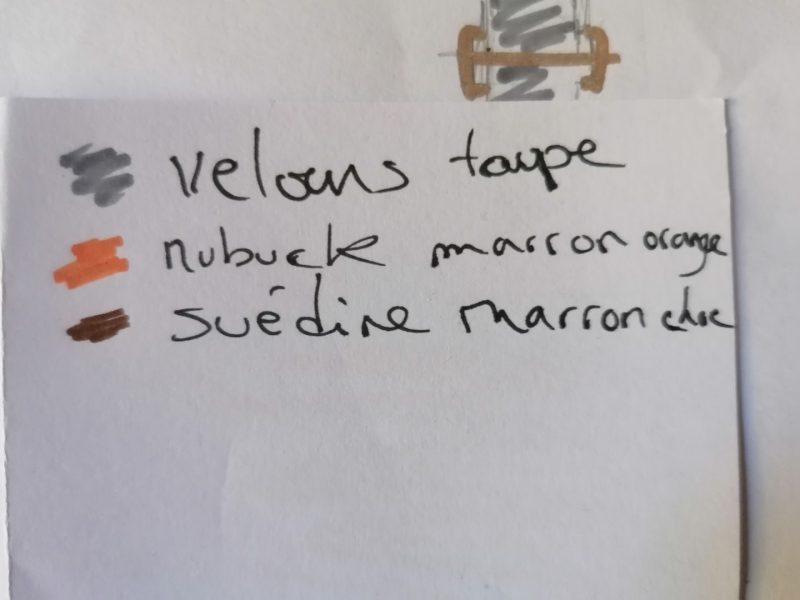 velours taupe
nubuck marron orange
suédine marron choc